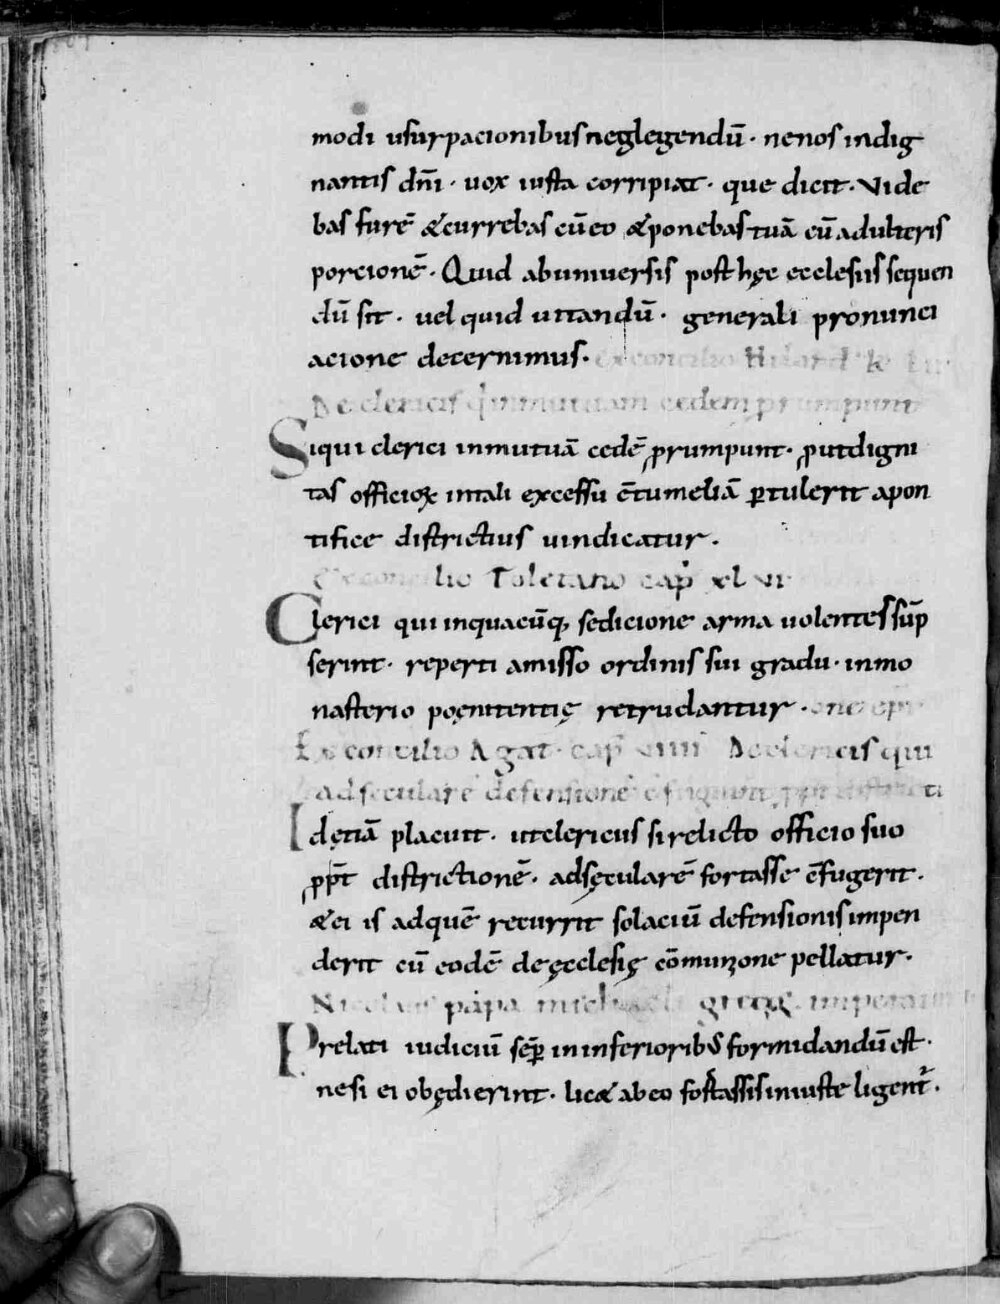 modi usurpacionibus neglegendū · nenos indig
nantis dn̄i · uox iusta corripiat · que dicit · Vide
bas furē &currebas cū eo &ponebas tuā cū adulteris
porcionē · Quid abuniuersis post hęc ecclesiis sequen
dū sit · uel quid uitandū · generali pronunci
acione decernimus ·
De clericis qui inmutuam cedem prrumpunt
Siqui clerici inmutuā cedē ꝓrumpunt · ꝓutdigni
tas officioꝝ intali excessu c̄tumeliā ꝑtulerit apon
tifice districtius uindicatur .
Ex concilio Toletano cap̄ xlvi
Clerici qui inquacūq; sedicione arma uolentes sūp
serint · reperti amisso ordinis sui gradu · inmo
nasterio poęnitentię retrudantur ·
Ex concilio Agat · cap̄ Declericis qui
adseculare defensionē
Id etiā placuit · utclericus si relicto officio suo
ꝓp̄t districtionē · adsęcularē fortasse c̄fugerit .
&ei is adquē recurrit solaciū defensionis impen
derit cū eodē de ęcclesię cōmunione pellatur .
Nicolaus papa michaeli
Prelati iudiciū semꝑ in inferioribꝰ formidandū est ·
nesi ei obędierint · lic& abeo fortassis iniuste ligent᷑ .